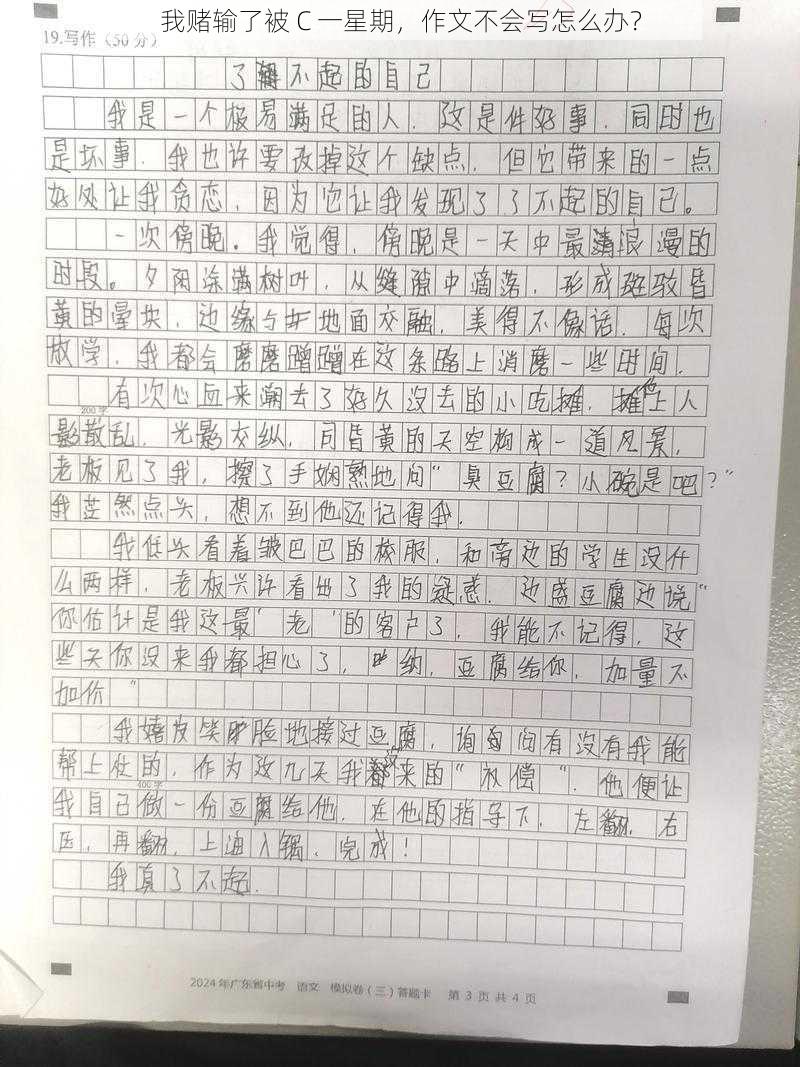 我赌输了被 C 一星期，作文不会写怎么办？
19.写作（50分）
了不起的自己
我是一个极易满足的人．这是件好事．同时也
是坏事．我也许要改掉这个缺点．但它带来的一点
好处让我贪恋．因为它让我发现了了不起的自己。
一次傍晚．我觉得，傍晚是一天中最浪漫的
时段。夕阳涂满树叶，从缝隙中滴落，形成斑驳昏
黄的晕块，边缘与地面交融，美得不像话．每次
放学，我都会磨磨蹭蹭在这条路上消磨一些时间．
有次心血来潮去了好久没去的小吃摊．摊上人
200字
影散乱，光影交纵，同昏黄的天空构成一道风景，
老板见了我，擦了手娴熟地问“臭豆腐？小碗是吧？”
我茫然点头，想不到他还记得我．
我低头看着皱巴巴的校服，和旁边的学生没什
么两样．老板兴许看出了我的疑惑．边盛豆腐边说“
你估计是我这最“老”的客户了．我能不记得．这
些天你没来我都担心了．呐，豆腐给你，加量不
加价”
我嬉皮笑脸地接过豆腐，询问有没有我能
帮上忙的，作为这几天我没来的“补偿”．他便让
400字
我自己做一份豆腐给他．在他的指导下，左翻，右
压，再翻，上油入锅，完成！
我真了不起．
2024年广东省中考 语文 模拟卷（三）答题卡 第 3 页 共 4 页